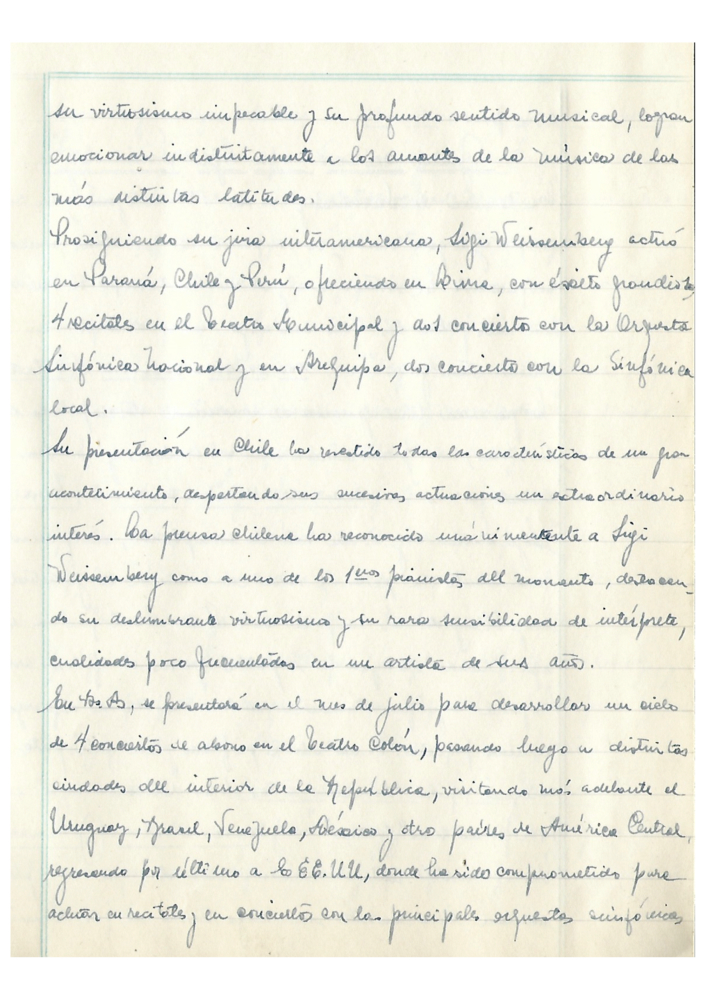 su virtuosismo impecable y su profundo sentido musical, logran
emocionar indistintamente a los amantes de la música de las
más distintas latitudes.
Prosiguiendo su jira interamericana, Sigi Weissemberg actuó
en Paraná, Chile y Perú, ofreciendo en Lima, con éxito grandioso,
4 recitales en el Teatro Municipal y dos concierto con la Orquesta
Sinfónica Nacional y en Arequipa, dos concierto con la Sinfónica
local.
Su presentación en Chile ha revestido todas las características de un gran
acontecimiento, despertando sus sucesivas actuaciones un extraordinario
interés. La prensa chilena ha reconocido unánimemente a Sigi
Weissemberg como a uno de los 1eros pianistas del momento, destacan-
do su deslumbrante virtuosismo y su rara sensibilidad de intérprete,
cualidades poco frecuentadas en un artista de sus años.
En Bs. As, se presentará en el mes de julio para desarrollar un ciclo
de 4 conciertos de abono en el Teatro Colón, pasando luego a distintas
ciudades del interior de la República, visitando más adelante el
Uruguay, Brasil, Venezuela, México y otro países de América Central,
regresando por último a EE.UU, donde ha sido comprometido para
actuar en recitales y en conciertos con las principales orquestas sinfónicas